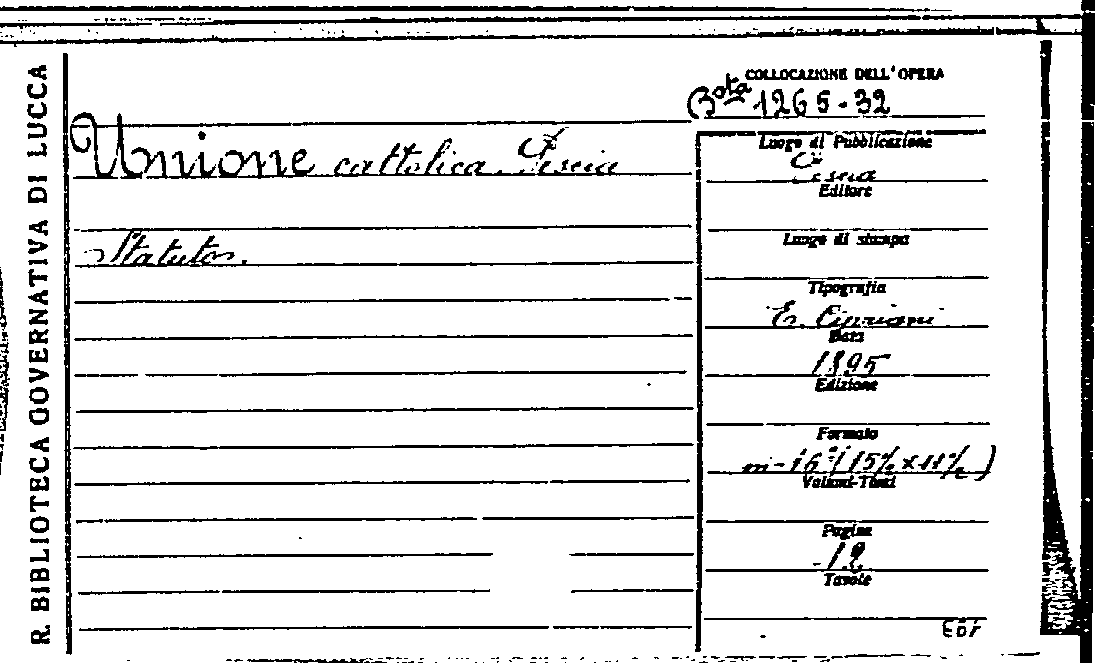 R. BIBLIOTECA GOVERNATIVA DI LUCCA
COLLOCAZIONE DELL'OPERA
B.ta 1265-32
Unione cattolica. Pescia
Statuto.
Luogo di Pubblicazione
Pescia
Editore
Luogo di stampa
Tipografia
E. Cipriani
Data
1895
Edizione
Formato
in-16°(15½ x 11½)
Volumi-Tomi
Pagine
12
Tavole